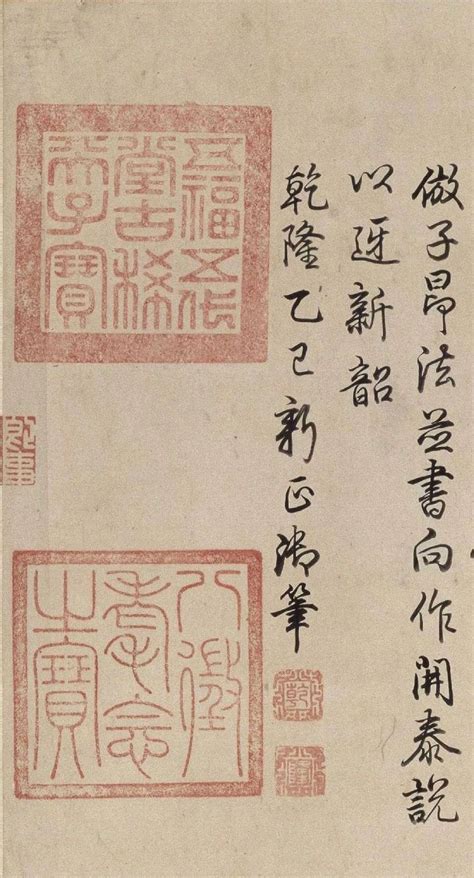 倣子昂法並書向作開泰說
以迓新韶
乾隆乙巳新正御筆
五福五代
堂古稀
天子寶
八徵
耄念
之寶
乾
隆
即事